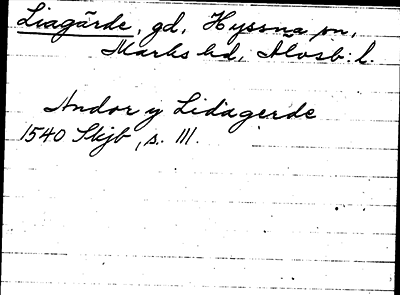 Liagärde, gd, Hyssna sn,
Marks hd, Älvsb. l.
Andor y Lidagerde
1540 Skjb, s. 111.